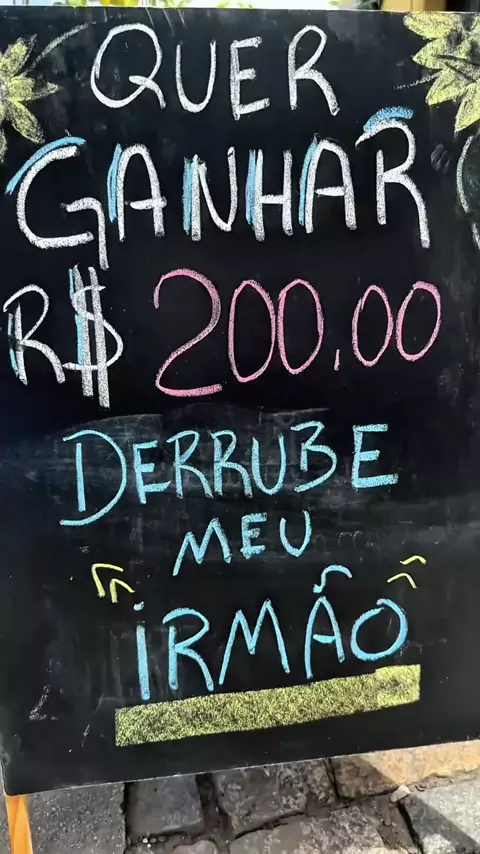 QUER
GANHAR
R$ 200,00
DERRUBE
MEU
IRMÃO